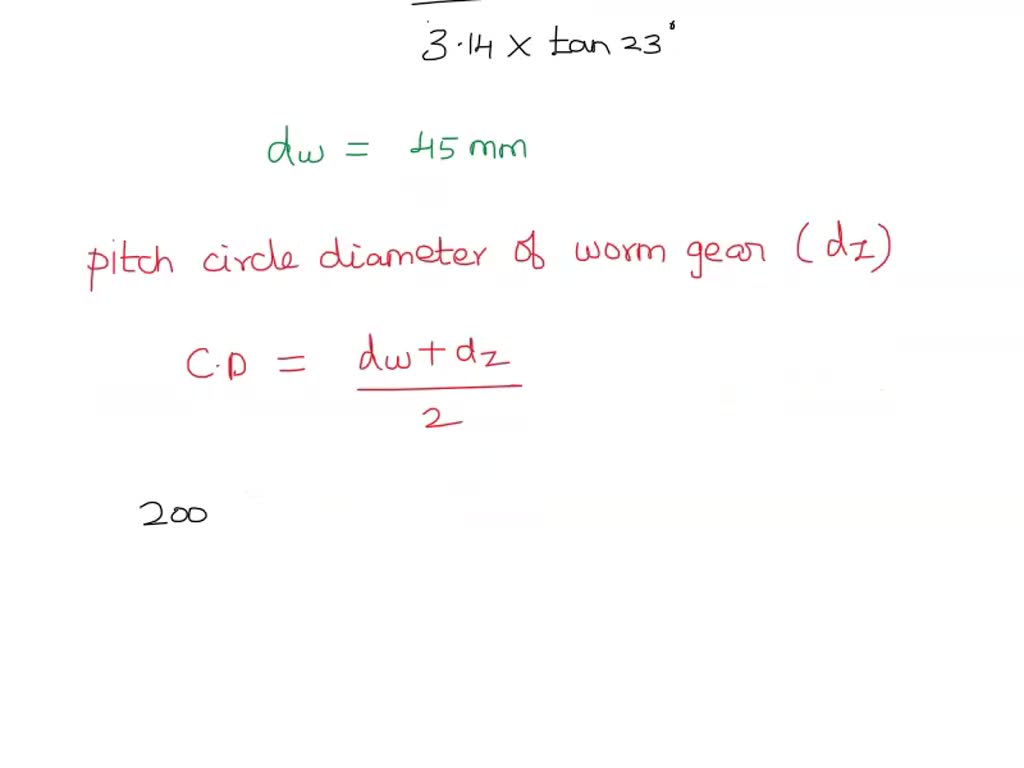 3.14 × tan 23°
dw = 45 mm
pitch circle diameter of worm gear (dz)
C.D = dw + dz
2
200